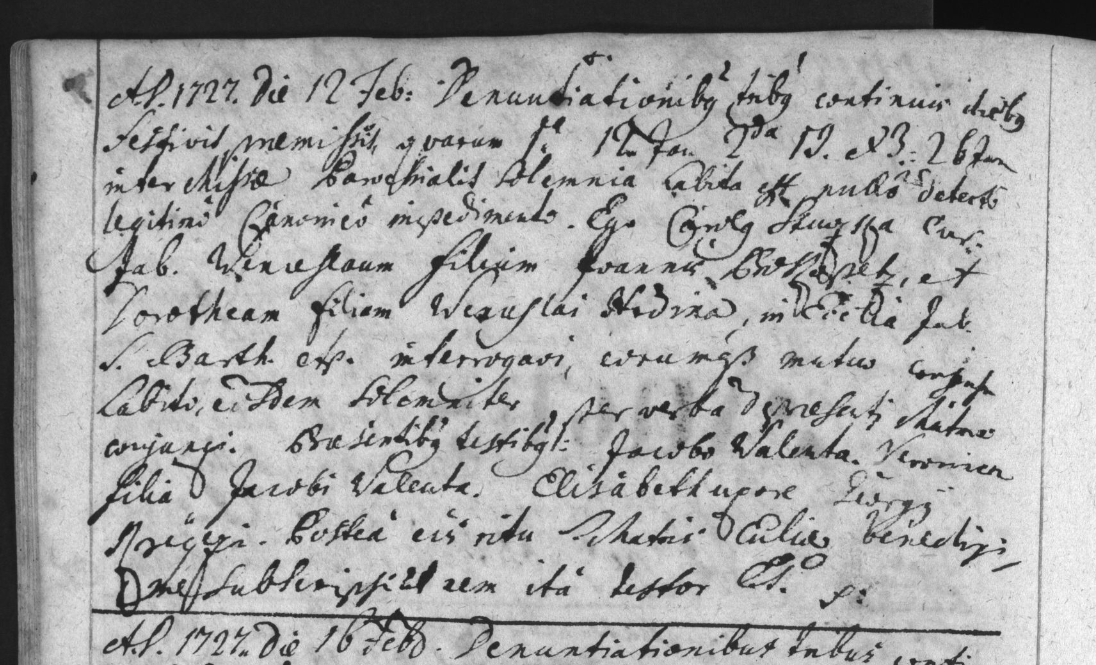 A. 1727. Die 12 Feb: Denuntiationibg tribg continuis diebg
festivis praemissis, quarum 1a 12. Jan. 2da 19. et 3. : 26 Jan
inter Missae Parochialis solemnia habita est nullo detecto
legitimo Canonico impedimento. Ego Carolg Cur:
Jab. Wenceslaum filium Joannis et
Dorotheam filiam Wenceslai Hrdina, in Ecclia Jab.
S. Barth. Ap. interrogavi, eorumq mutuo consensu
habito, eosdem solemniter per verba de praesenti Matrim
conjunxi. Praesentibg testibg: Jacobo Valenta. Veronica
filia Jacobi Valenta. Elisabeth uxore Georgy
Postea eis ritu Matris Eccliae benedixi,
me subscripsi rem ita testor
A. 1727. Die 16 Feb. Denuntiationibus tribus conti